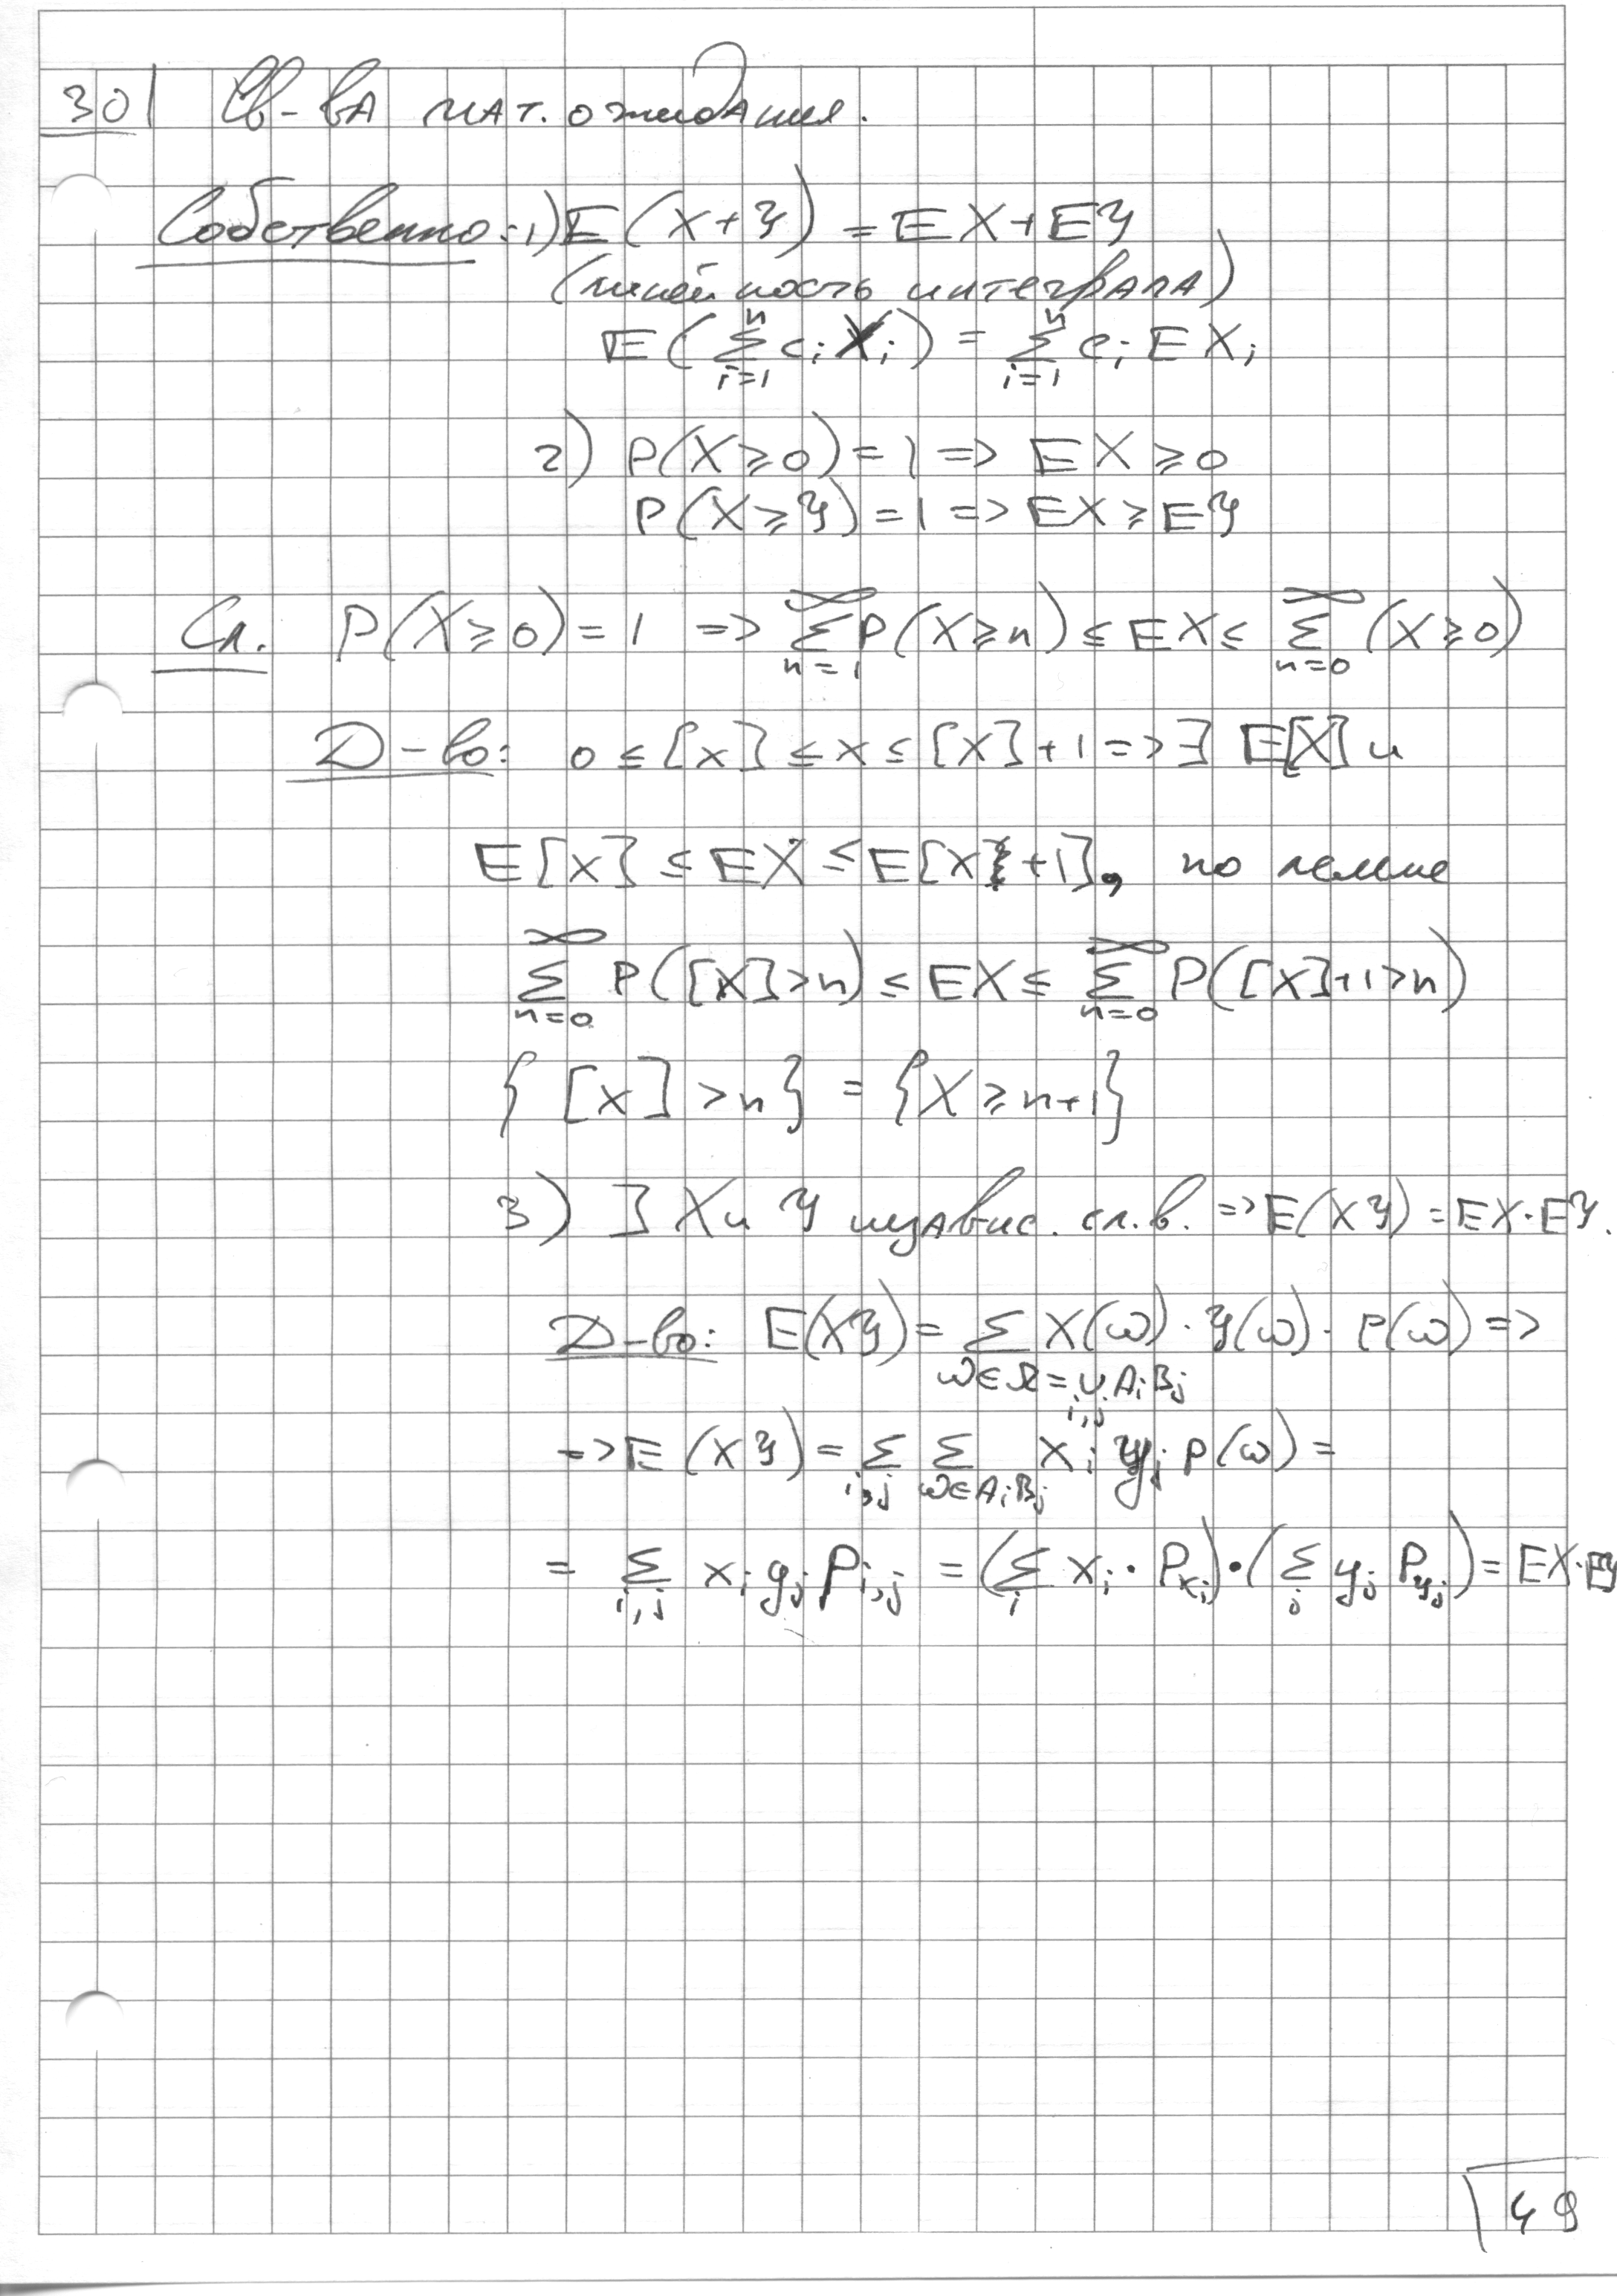 30| Св-ва мат. ожидания.
Собственно: 1) E(X+Y) = EX+EY
(линейность интеграла)
E(∑_{i=1}^{n} c_i X_i) = ∑_{i=1}^{n} c_i EX_i
2) P(X≥0)=1 => EX≥0
P(X≥Y)=1 => EX≥EY
Сл. P(X≥0)=1 => ∑_{n=1}^{∞} P(X≥n) ≤ EX ≤ ∑_{n=0}^{∞} (X≥0)
Д-во: 0 ≤ [X] ≤ X ≤ [X]+1 => ∃ E[X] и
E[X] ≤ EX ≤ E[X+1], по лемме
∑_{n=0}^{∞} P([X]>n) ≤ EX ≤ ∑_{n=0}^{∞} P([X]+1>n)
{[X]>n} = {X≥n+1}
3) ] X и Y независ. сл.в. => E(XY) = EX·EY.
Д-во: E(XY) = ∑_{ω∈Ω=∪_{i,j} A_i B_j} X(ω)·Y(ω)·P(ω) =>
=> E(XY) = ∑_{i,j} ∑_{ω∈A_i B_j} x_i y_j P(ω) =
= ∑_{i,j} x_i y_j P_{i,j} = (∑_i x_i·P_{x_i})·(∑_j y_j P_{y_j}) = EX·EY
49